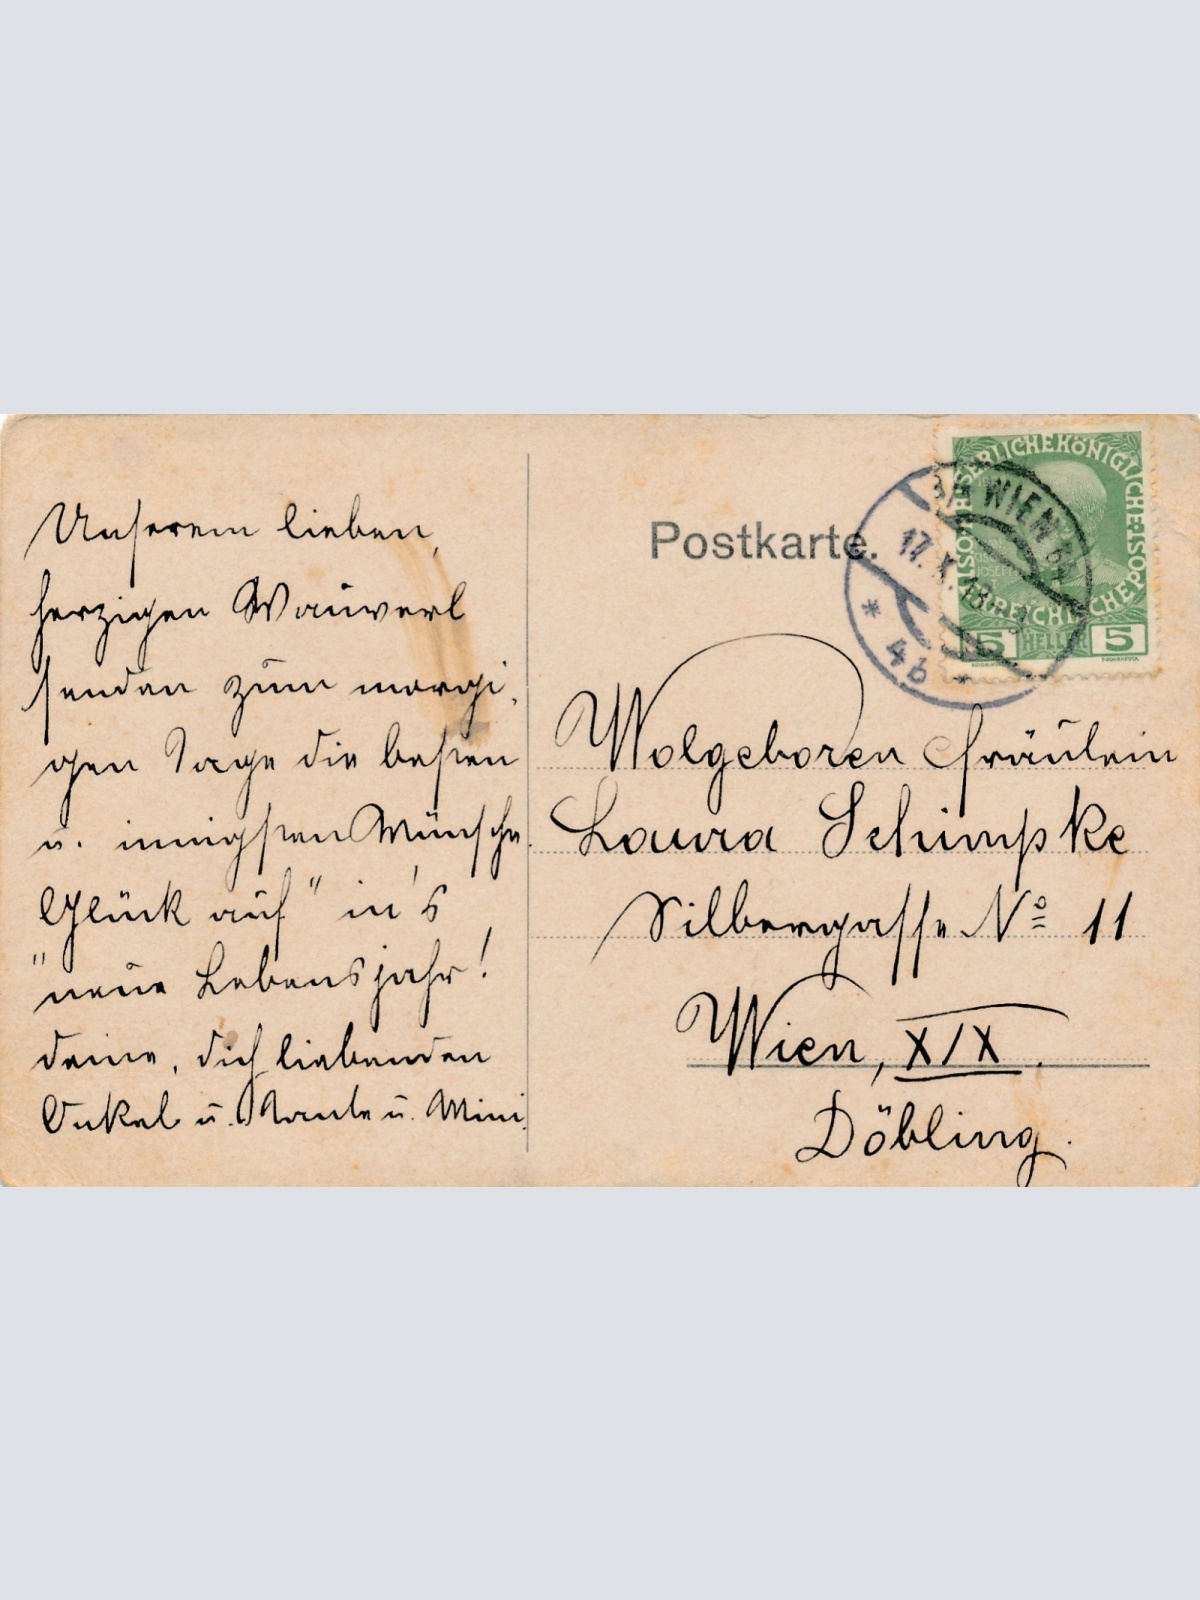 Unserem lieben,
herzigen Wauwerl
senden zum morgi-
gen Tage die besten
u. innigsten Wünsche.
Glück auf" in's
"neue Lebensjahr!
deine, dich liebenden
Onkel u. Tante u. Mini.
Postkarte.
WIEN
17. X.
4b
KAISERLICHE KÖNIGLICHE ÖSTERREICHISCHE POST
5 HELLER 5
Wolgeboren Fräulein
Laura Schimpke
Silbergasse No 11
Wien, XIX.
Döbling.